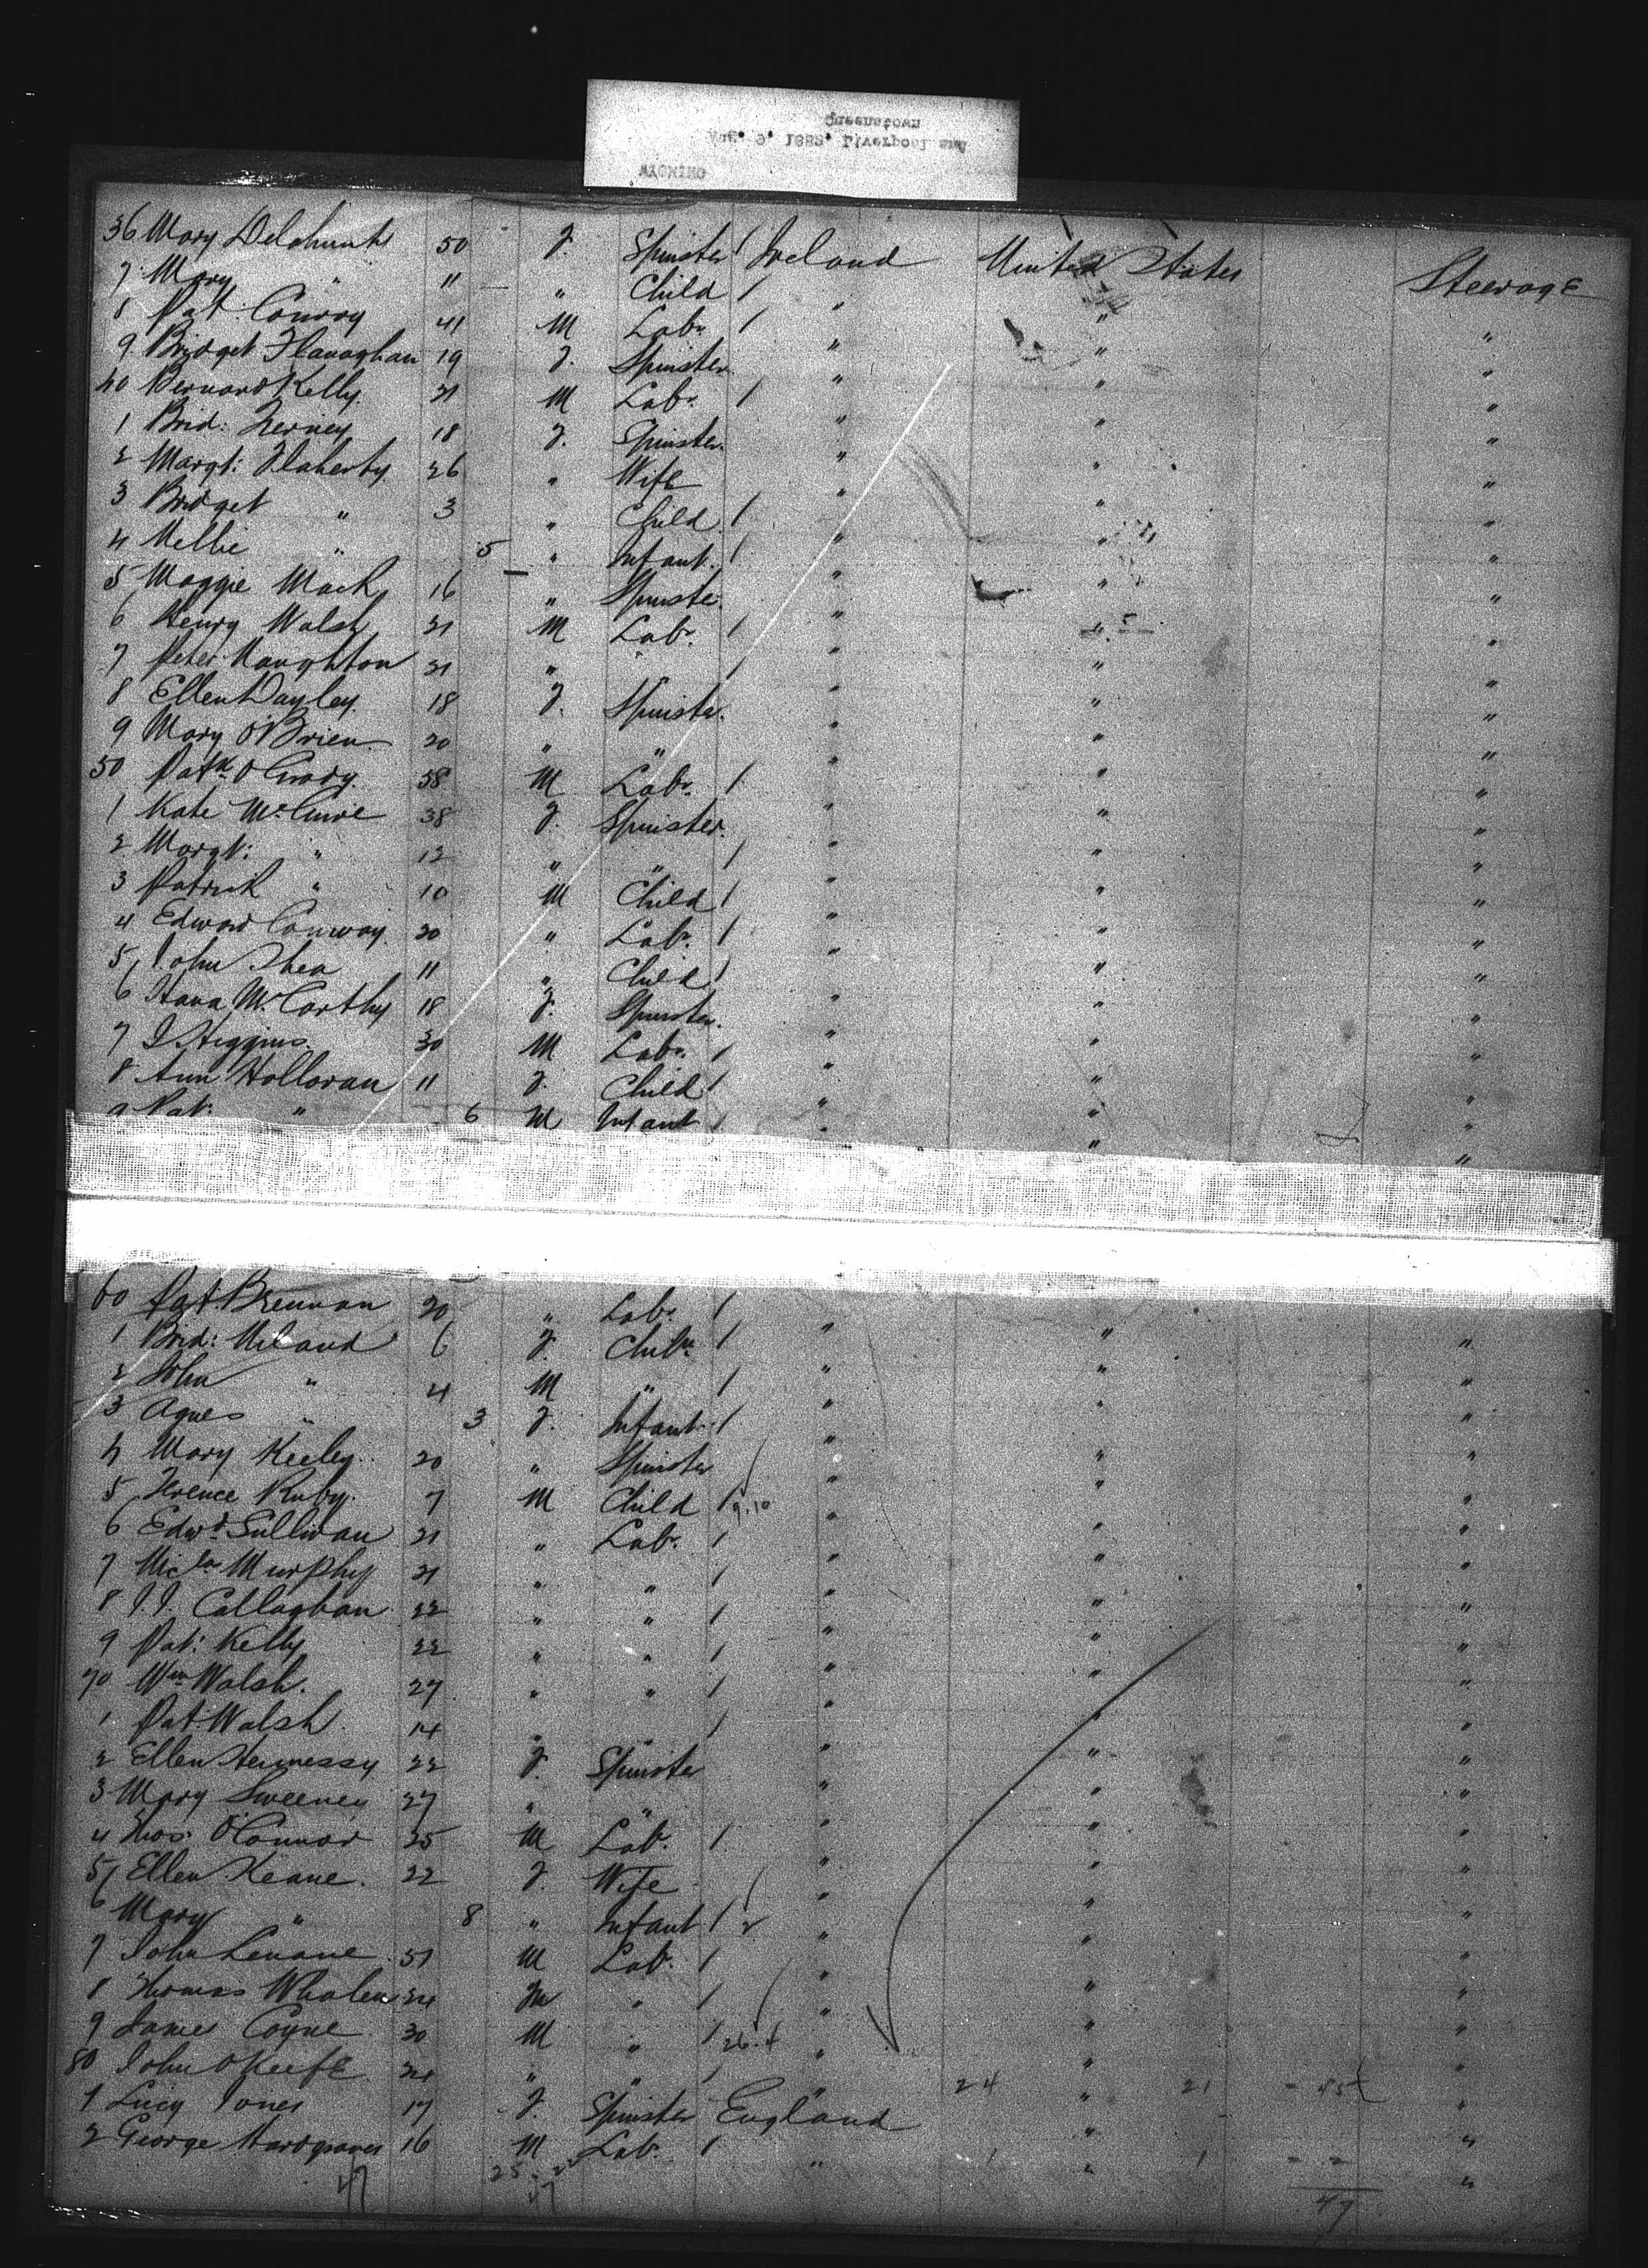 WYOMING
Aug. 3, 1883. Liverpool and
Queenstown
36 Mary Delahunt 50 F. Spinster / Ireland United States Steerage
7 Mary " 11 " Child / " " "
8 Pat: Conroy 41 M Labr. / " " "
9 Bridget Flanaghan 19 F. Spinster. " " "
40 Bernard Kelly 21 M Labr. / " " "
1 Brid: 18 F. Spinster. " " "
2 Margt: Flaherty 26 " Wife " " "
3 Bridget " 3 " Child / " " "
4 Nellie " 5 " Infant. / " " "
5 Maggie Mack 16 " Spinster. " " "
6 Henry Walsh 21 M Labr. / " " "
7 Peter Naughton 21 " " / " " "
8 Ellen Dayley 18 F. Spinster. " " "
9 Mary O'Brien 20 " " " " "
50 Patk O'Grady 58 M Labr. / " " "
1 Kate 38 F. Spinster. " " "
2 Margt: " 12 " " / " " "
3 Patrick " 10 M Child / " " "
4 Edward Conway 20 " Labr. / " " "
5 John Shea 11 " Child / " " "
6 Hana McCarthy 18 F. Spinster. " " "
7 J Higgins 30 M Labr. / " " "
8 Ann Holloran 11 F. Child / " " "
9 Pat: " 6 M Infant / " " "
60 Pat. Brennan 20 " Labr. / " " "
1 Brid: Niland 6 F. Chiln / " " "
2 John " 4 M " / " " "
3 Agnes " 3 F. Infant / " " "
4 Mary Keeley 20 " Spinster " " "
5 Terence Ruby 7 M Child / 9.10 " " "
6 Edwd Sullivan 21 " Labr. / " " "
7 Murphy 21 " " / " " "
8 J.J. Callaghan 22 " " / " " "
9 Pat: Kelly 22 " " / " " "
70 Wm Walsh. 27 " " / " " "
1 Pat: Walsh 14 " " / " " "
2 Ellen Hennessy 22 F. Spinster " " "
3 Mary Sweeney 27 " " " " "
4 Thos. O'Connor 25 M Labr. / " " "
5 Ellen Keane. 22 F. Wife " " "
6 Mary " 8 " Infant / 2 " " "
7 John Lenane 51 M Labr. / " " "
8 Thomas Whalen 24 M " / " " "
9 James Coyne 30 M " / 26.4 " " "
80 John O'Keefe 24 " " / " " "
24 21 - 45
1 Lucy Jones 17 F. Spinster England " "
2 George Hardgraves 16 M Labr. / " " "
1 1 - 2
47 47 47